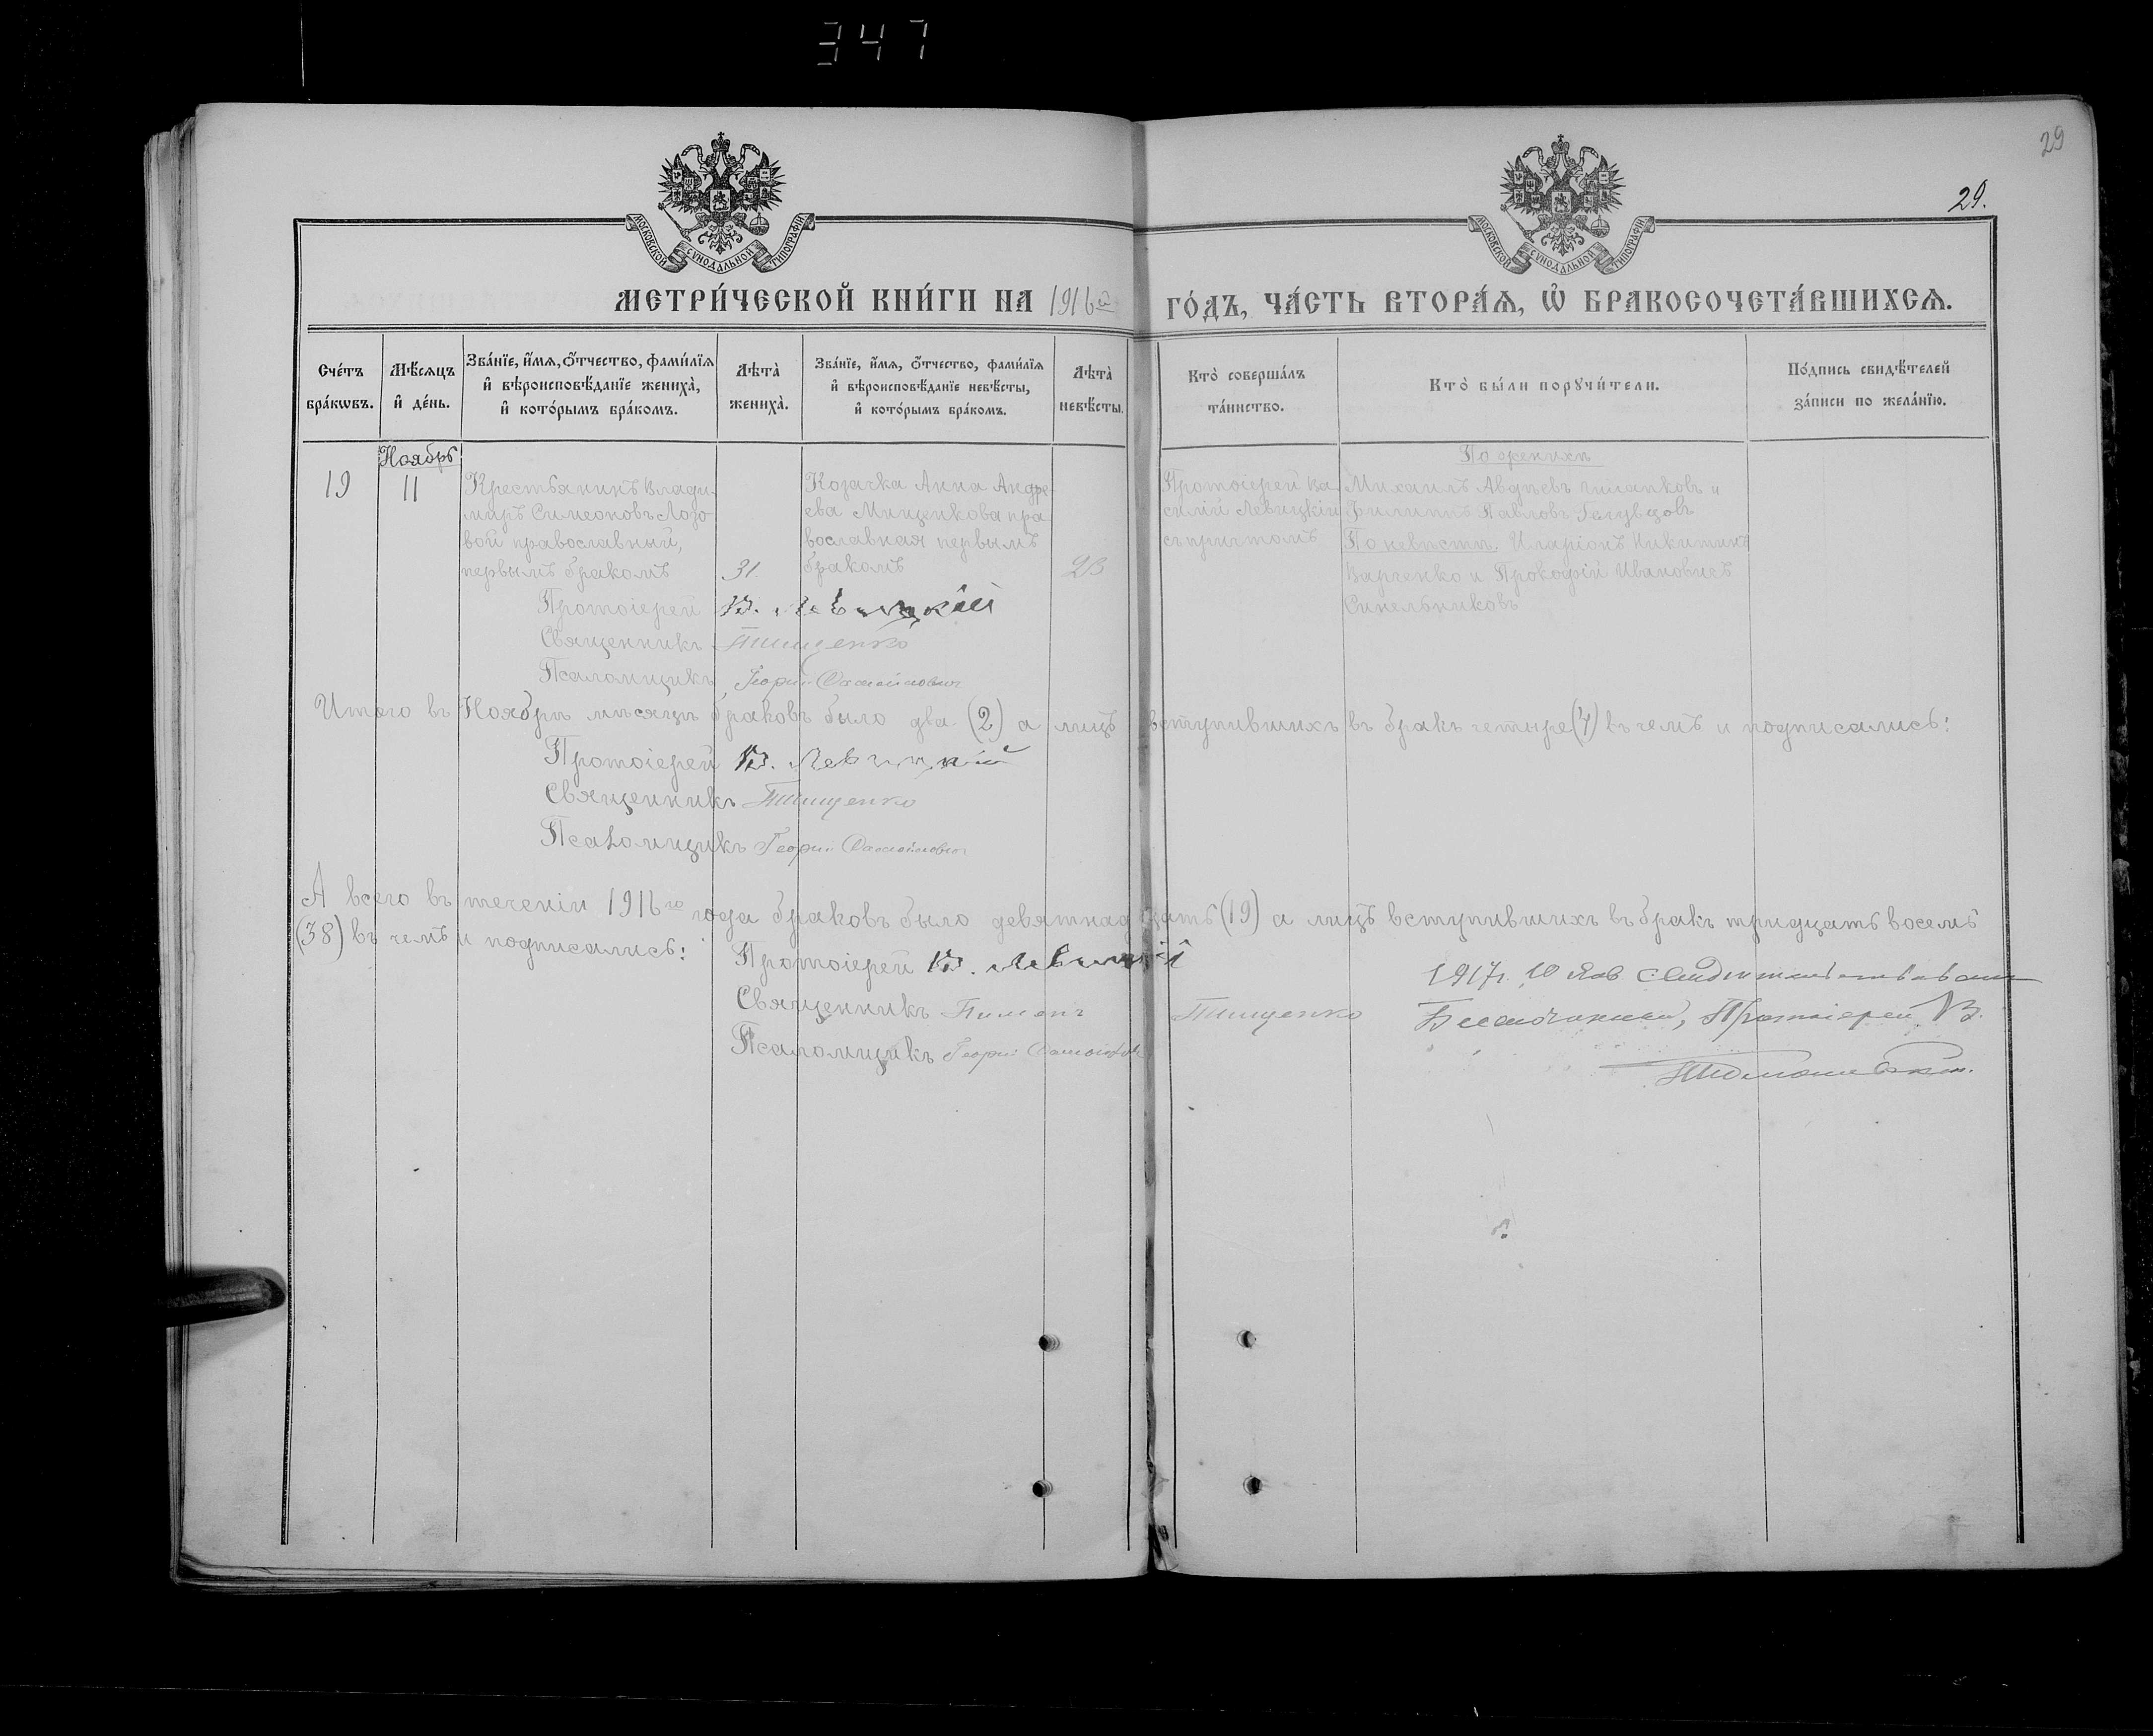 347
29
29.
МОСКОВСКОЙ СѴНОДАЛЬНОЙ ТИПОГРАФІИ
МОСКОВСКОЙ СѴНОДАЛЬНОЙ ТИПОГРАФІИ
МЕТРИ́ЧЕСКОЙ КНИ́ГИ НА 1916й ГО́ДЪ, ЧА́СТЬ ВТОРА́Ѧ, Ѽ БРАКОСОЧЕТА́ВШИХСѦ.
Сче́тъ
бра́кѡвъ.
Мѣ́сѧцъ
и҆ де́нь.
Зва́нїе, и҆́мѧ, ѻ҆́тчество, фами́лїѧ
и҆ вѣроисповѣ́данїе жениха̀,
и҆ кото́рымъ бра́комъ.
Лѣта̀
жениха̀.
Зва́нїе, и҆́мѧ, ѻ҆́тчество, фами́лїѧ
и҆ вѣроисповѣ́данїе невѣ́сты,
и҆ кото́рымъ бра́комъ.
Лѣта̀
невѣ́сты.
Кто̀ соверша́лъ
та́инство.
Кто̀ бы́ли порꙋчи́тели.
По́дпись свидѣ́телей
за́писи по жела́нїю.
Ноябрь
19
11
Крестьянинъ Влади-
миръ Симеоновъ Лозо
вой православный,
первымъ бракомъ
31.
Козачка Анна Андре-
ева Мищенкова пра
вославная первымъ
бракомъ
23
Протоіерей Ва-
силій Левицкій
съ причтомъ
По женихѣ
Михаилъ Авдѣевъ и
Филиппъ Павловъ
По невѣстѣ. Иларіонъ Никитинъ
Харченко и Прокофій Ивановичъ
Синельниковъ
Протоіерей В. Левицкій
Священникъ Тищенко
Псаломщикъ Георгій
Итого въ Ноябрѣ мѣсяцѣ браковъ было два (2) а лицъ вступившихъ въ бракъ четыре (4) въ чемъ и подписались:
Протоіерей В. Левицкій
Священникъ Тищенко
Псаломщикъ Георгій
А всего въ теченіи 1916го года браковъ было девятнадцать (19) а лицъ вступившихъ въ бракъ тридцать восемь
(38) въ чемъ и подписались:
Протоіерей В. Левицкій
Священникъ Пименъ Тищенко
Псаломщикъ Георгій
1917г. 10 Янв
Благочинный, Протоіерей В.